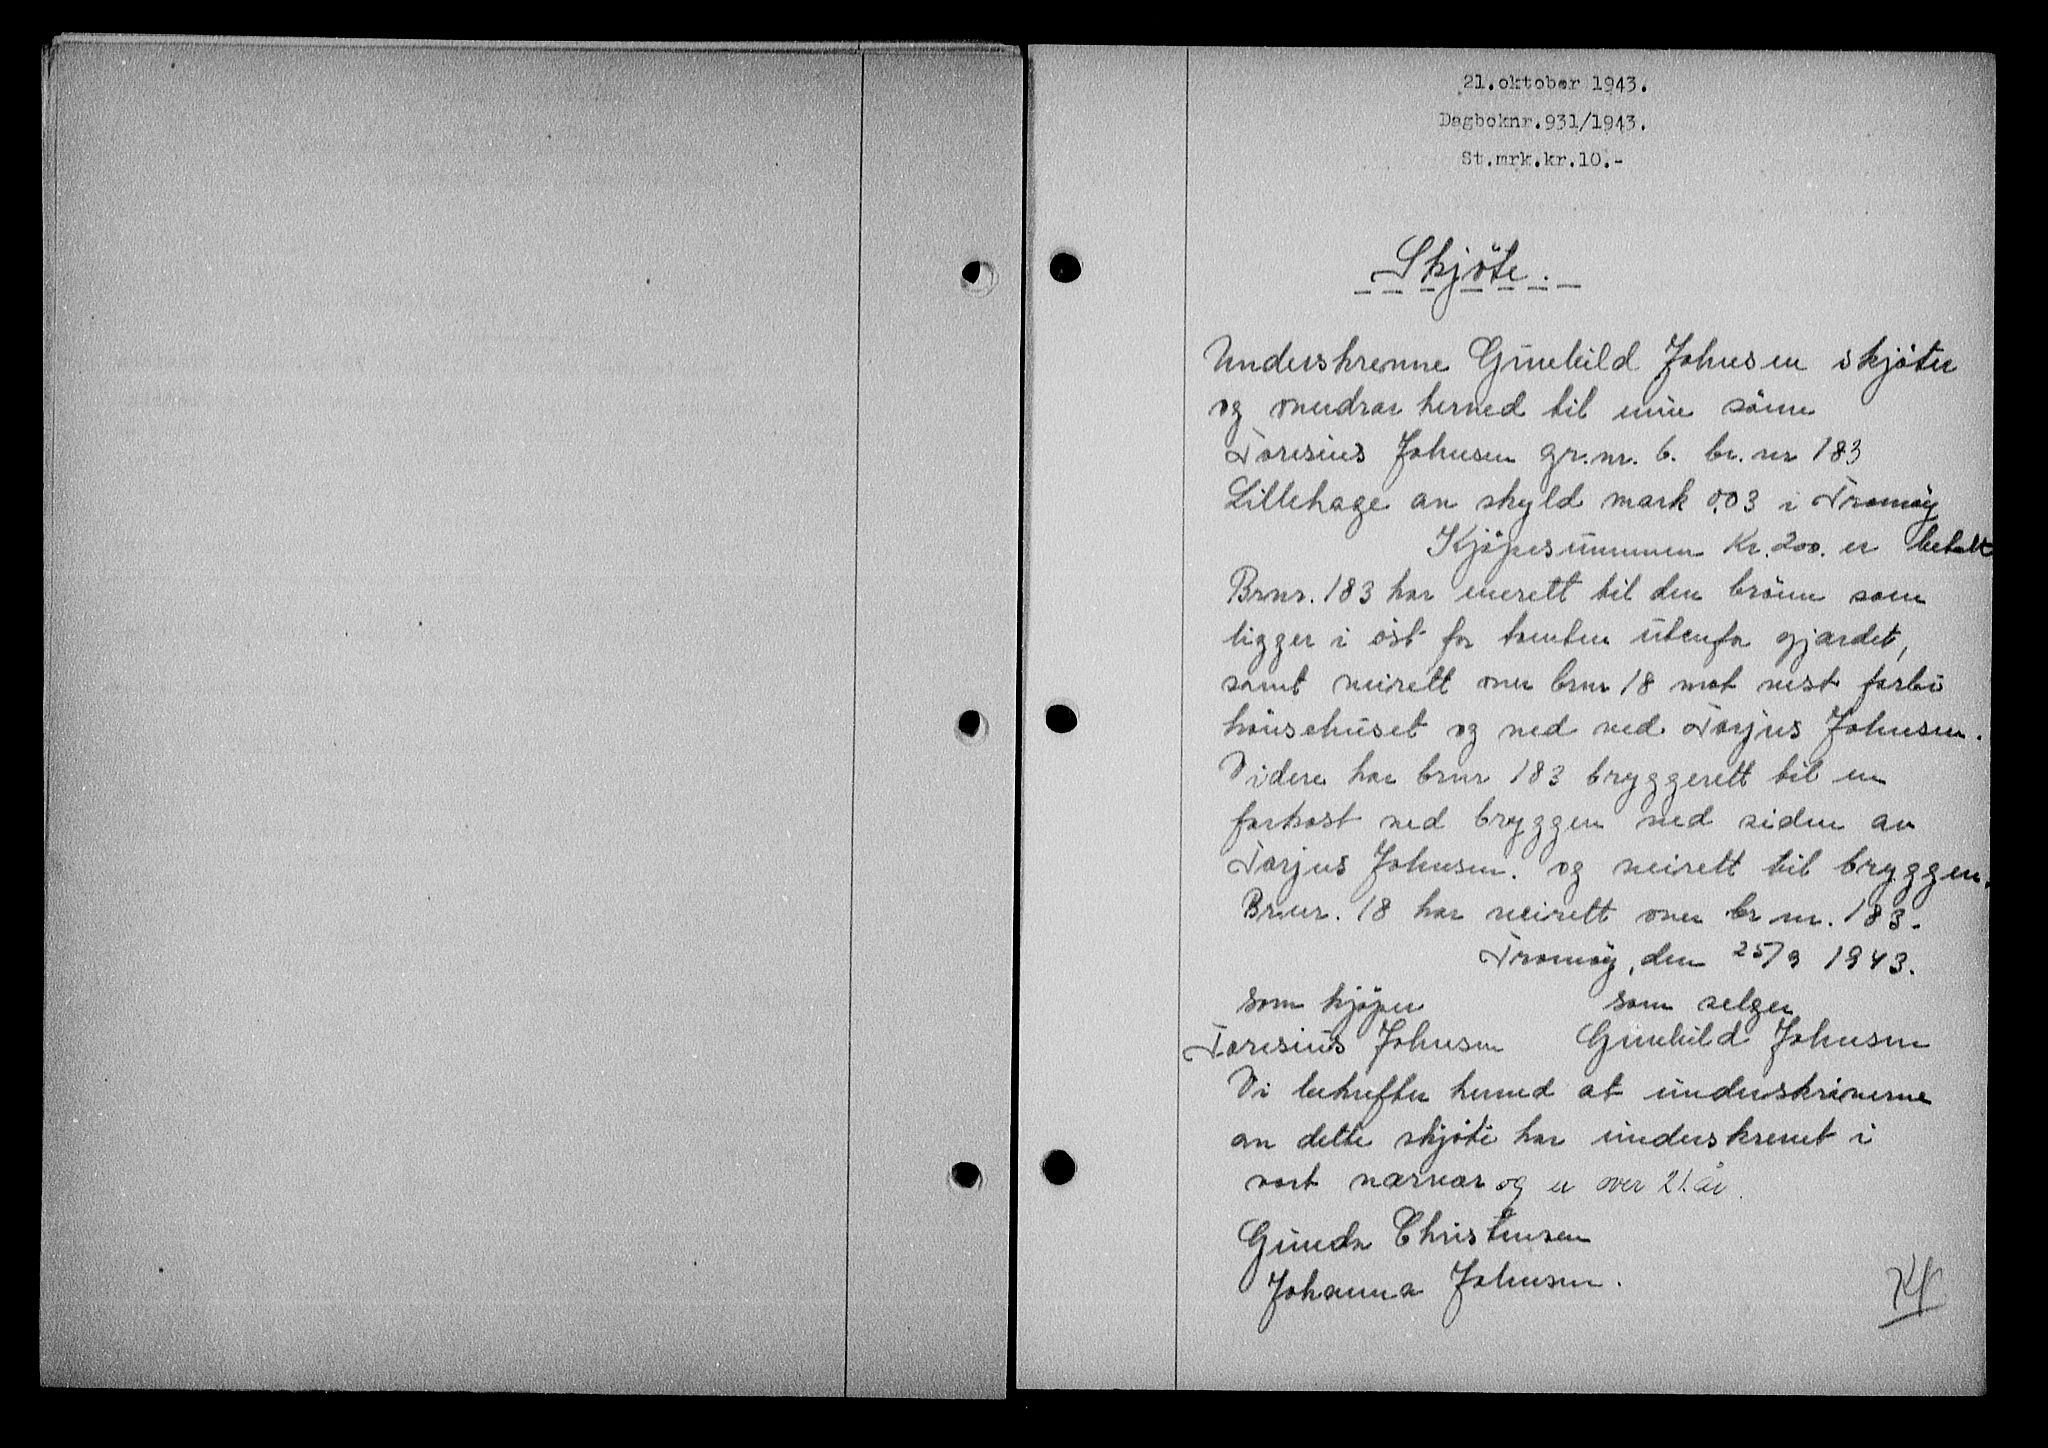 21.oktober 1943.
Dagboknr.931/1943.
St.mrk.kr.10.-
Skjöte.
Underskrevne Gunhild Johnsen skjöter
og overdrar herved til min sönn
Toresius Johnsen gr.nr. 6. br. nr 183
Lillehage av skyld mark 0.03 i Tromöy
Kjöpesummen Kr. 200. er betalt
Brnr. 183 har eierett til den brönn som
ligger i öst for tomten utenfor gjærdet,
samt veirett over brnr 18 mot vest forbi
hönsehuset og ned ved Torjus Johnsen.
Videre har brnr 183 bryggerett til en
farkost ved bryggen ved siden av
Torjus Johnsen. og veirett til bryggen.
Brnr. 18 har veirett over br nr. 183.
Tromöy, den 25/9 1943.
som kjöper som selger
Toresius Johnsen Gunhild Johnsen
Vi bekrefter herved at underskriverne
av dette skjöte har underskrevet i
vort nærvær og er over 21. år.
Gunda Christensen
Johanna Johnsen.